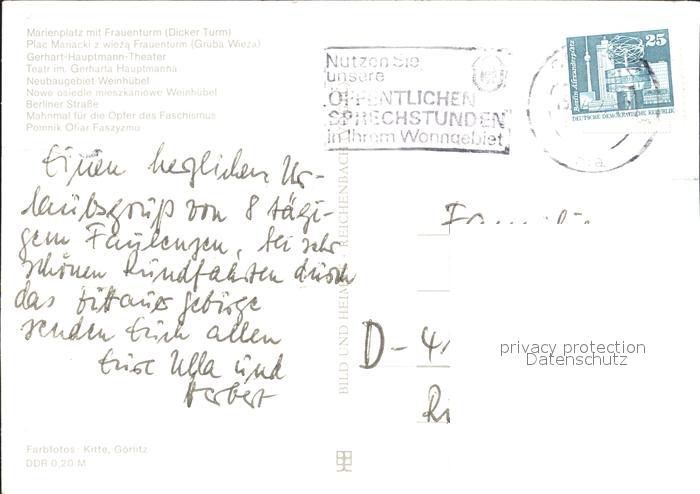 Marienplatz mit Frauenturm (Dicker Turm)
Plac Mariacki z wieżą Frauenturm (Gruba Wieża)
Gerhart-Hauptmann-Theater
Teatr im. Gerharta Hauptmanna
Neubaugebiet Weinhübel
Nowe osiedle mieszkaniowe Weinhübel
Berliner Straße
Mahnmal für die Opfer des Faschismus
Pomnik Ofiar Faszyzmu
Einen herzlichen Ur-
laubsgruß von 8 tägi-
gem Faulenzen, bei sehr
schönen Rundfahrten durch
das Zittauer gebirge
senden Euch allen
Eure Ulla und
Herbert
Farbfotos: Kitte, Görlitz
DDR 0,20 M
BILD UND HEIMAT REICHENBACH
Nutzen Sie
unsere
"ÖFFENTLICHEN
SPRECHSTUNDEN"
in Ihrem Wohngebiet
25
Berlin, Alexanderplatz
DEUTSCHE DEMOKRATISCHE REPUBLIK
Familie
D-41
Ri
privacy protection
Datenschutz